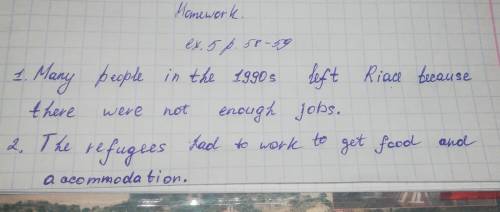 Homework.
ex. 5 p. 58-59
1. Many people in the 1990s left Riace because
there were not enough jobs.
2. The refugees had to work to get food and
accommodation.